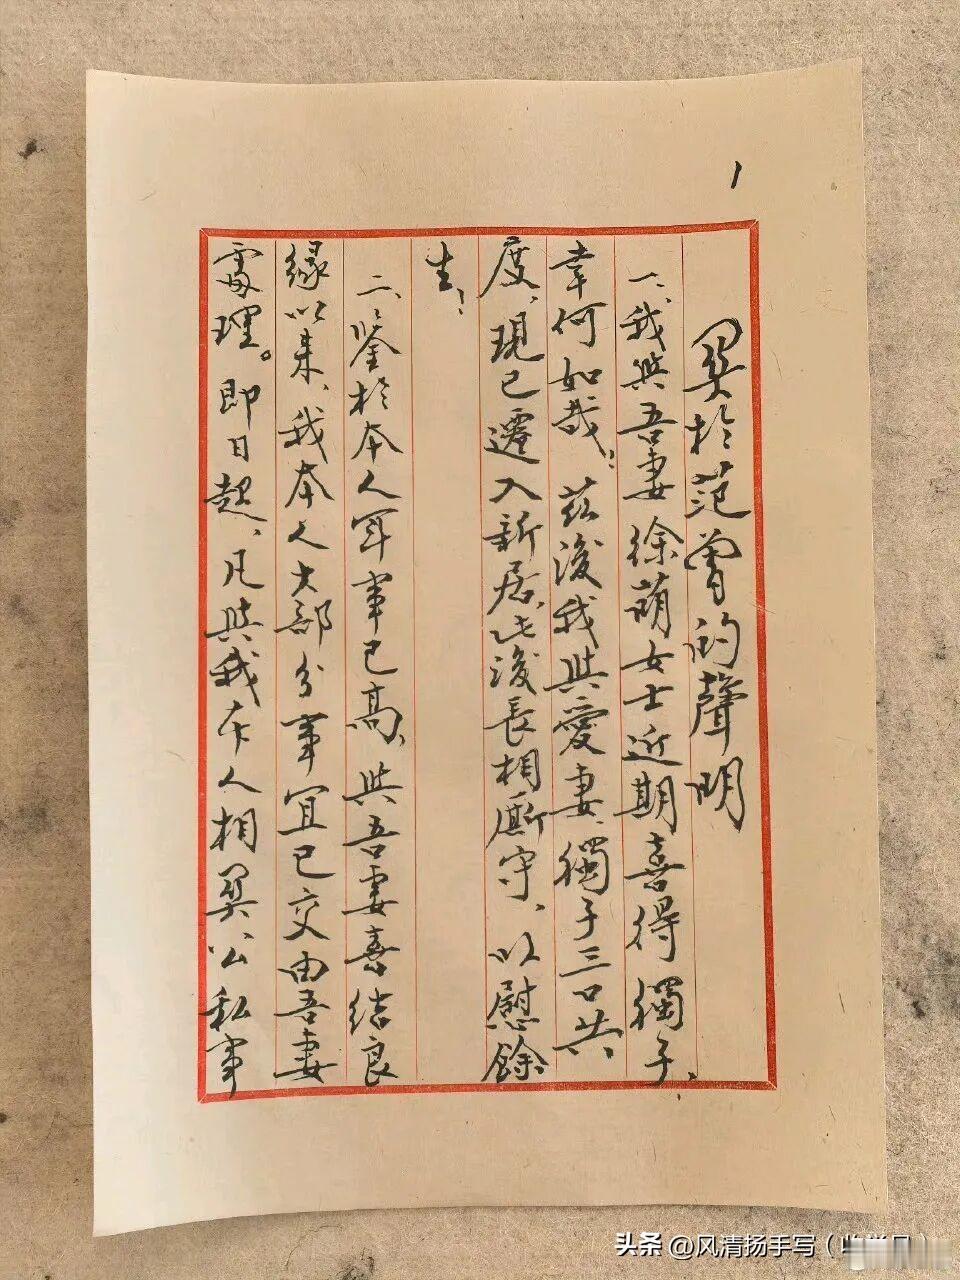 1
関於范曾的聲明
一、我與吾妻徐萌女士近期喜得獨子、
幸何如哉。茲後我與愛妻、獨子三口共
度、現已遷入新居、此後長相廝守、以慰餘
生；
二、鑒於本人年事已高、與吾妻喜結良
緣以來、我本人大部分事宜已交由吾妻
處理。即日起、凡與我本人相関公私事
头条 @风清扬手写